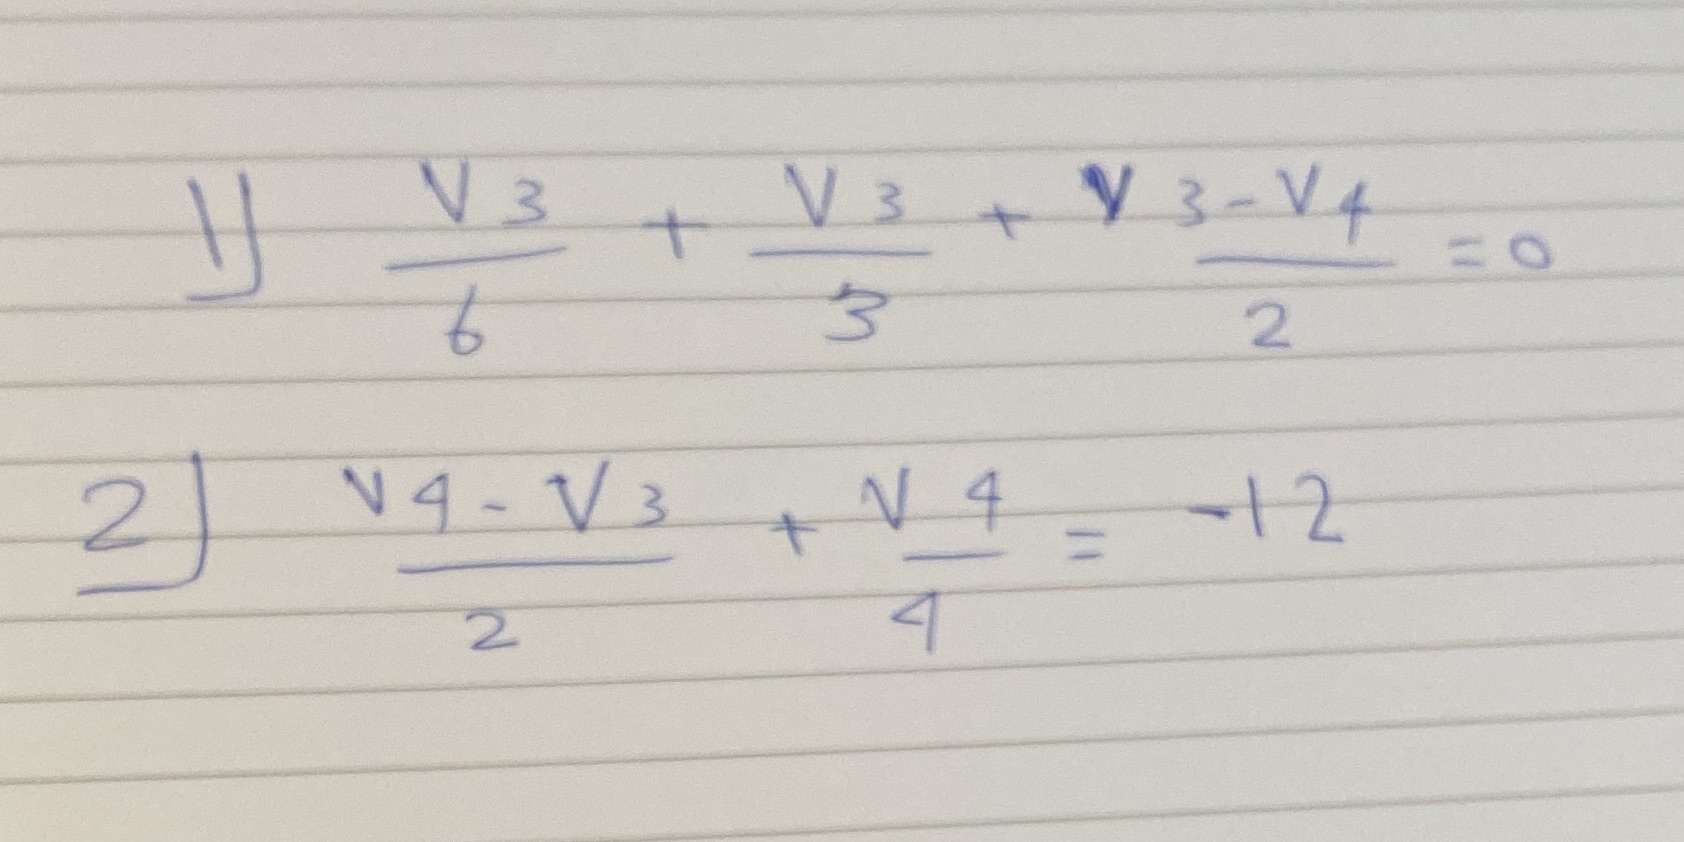 1) V3/6 + V3/3 + V3-V4/2 = 0
2) V4-V3/2 + V4/4 = -12